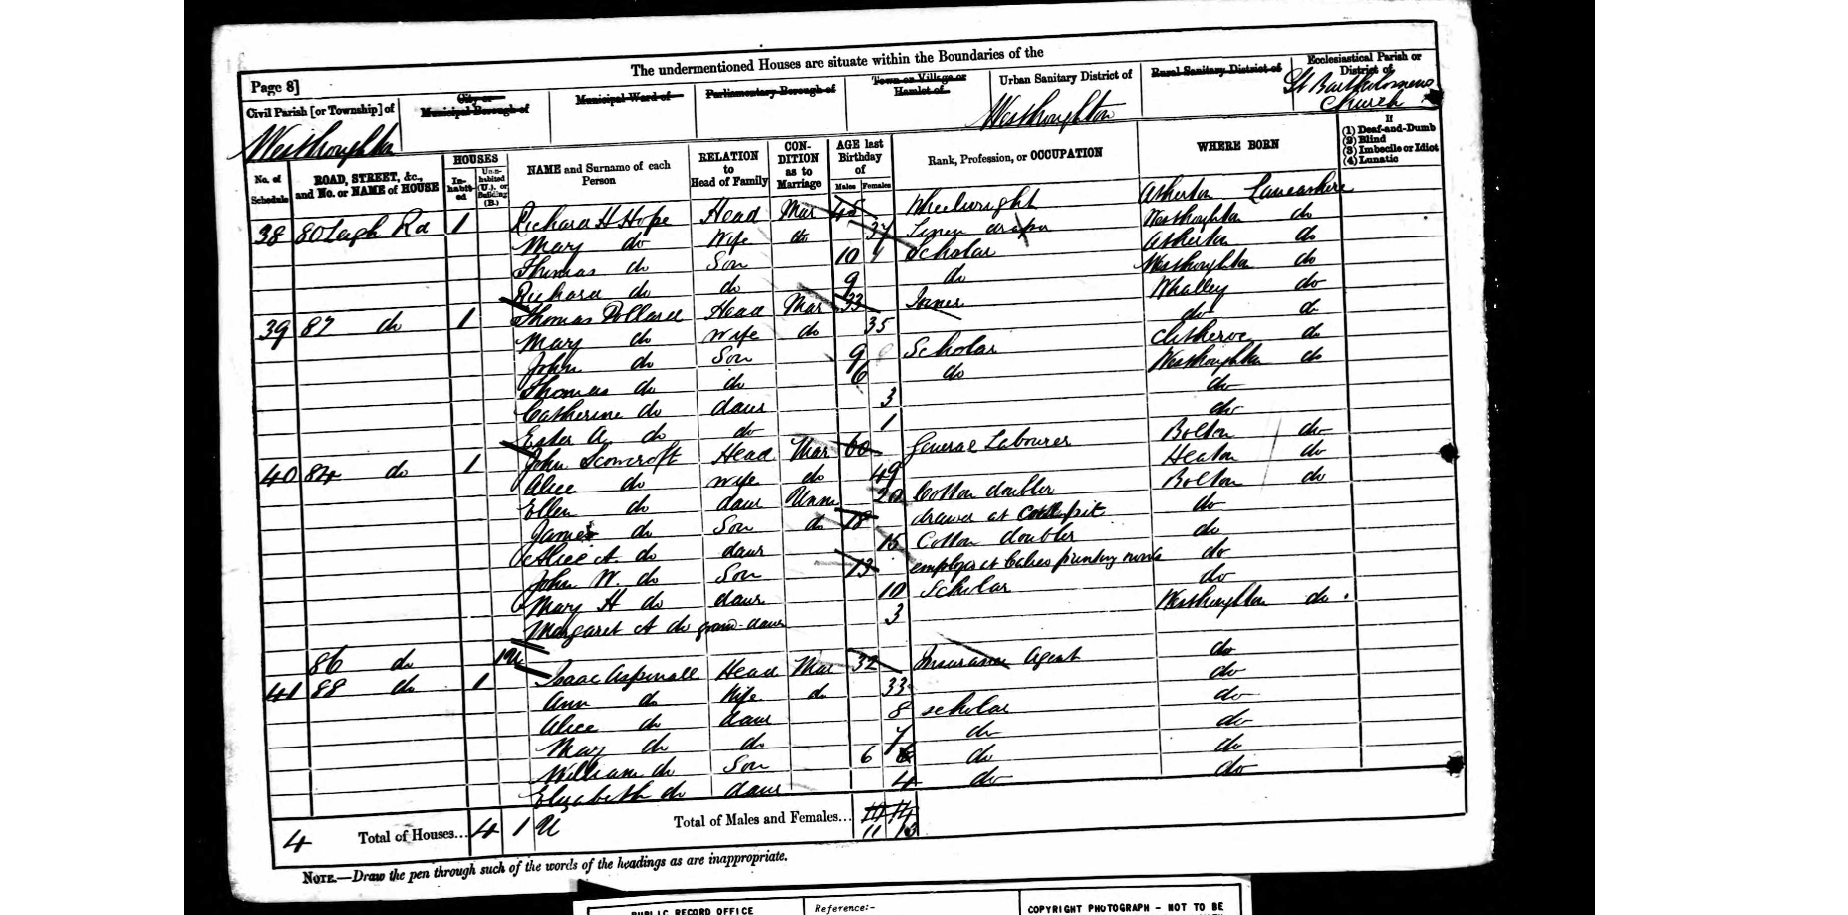 The undermentioned Houses are situate within the Boundaries of the
Page 8]
Civil Parish [or Township] of
City or Municipal Borough of
Municipal Ward of
Parliamentary Borough of
Town or Village or Hamlet of
Urban Sanitary District of
Rural Sanitary District of
Ecclesiastical Parish or District of
Westhoughton Westhoughton St Bartholomews Church
No. of Schedule
ROAD, STREET, &c., and No. or NAME of HOUSE
HOUSES
In-habit-ed
Un-inhabited (U.), or Building (B.)
NAME and Surname of each Person
RELATION to Head of Family
CON-DITION as to Marriage
AGE last Birthday of
Males Females
Rank, Profession, or OCCUPATION
WHERE BORN
If
(1) Deaf-and-Dumb
(2) Blind
(3) Imbecile or Idiot
(4) Lunatic
38 80 Leigh Rd 1 Richard H Hope Head Mar 45 Wheelwright Atherton Lancashire
Mary do Wife do 37 Linen draper Westhoughton do
Thomas do Son 10 Scholar Atherton do
Richard do do 9 do Westhoughton do
39 82 do 1 Thomas Pollard Head Mar 33 Whalley do
Mary do Wife do 35 do do
John do Son 9 Scholar Clitheroe do
Thomas do do 6 do Westhoughton do
Catherine do daur 3 do
Ester A. do do 1 do
40 84 do 1 John Scowcroft Head Mar 60 General Labourer Bolton do
Alice do wife do 49 Heaton do
Ellen do daur Unm 20 Cotton doubler Bolton do
James do Son do 18 drawer at Coalpit do
Alice A. do daur 15 Cotton doubler do
John W. do Son 13 employed at Calico printing works do
Mary H do daur 10 Scholar do
Margaret A do grand-daur 3 Westhoughton do
86 do 1U
41 88 do 1 Isaac Aspinall Head Mar 32 Insurance Agent do
Ann do Wife do 33 do
Alice do daur 8 scholar do
May do do 7 do do
William do Son 6 do do
Elizabeth do daur 4 do do
4 Total of Houses... 4 1 U Total of Males and Females... 11 13
NOTE.—Draw the pen through such of the words of the headings as are inappropriate.
PUBLIC RECORD OFFICE
Reference:-
COPYRIGHT PHOTOGRAPH - NOT TO BE